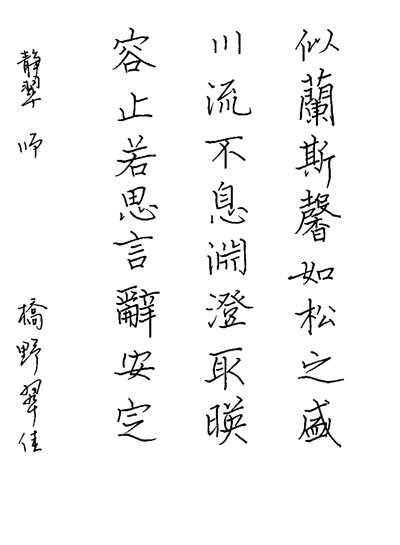 似蘭斯馨如松之盛
川流不息淵澄取暎
容止若思言辭安定
静翠师 橋野翠佳